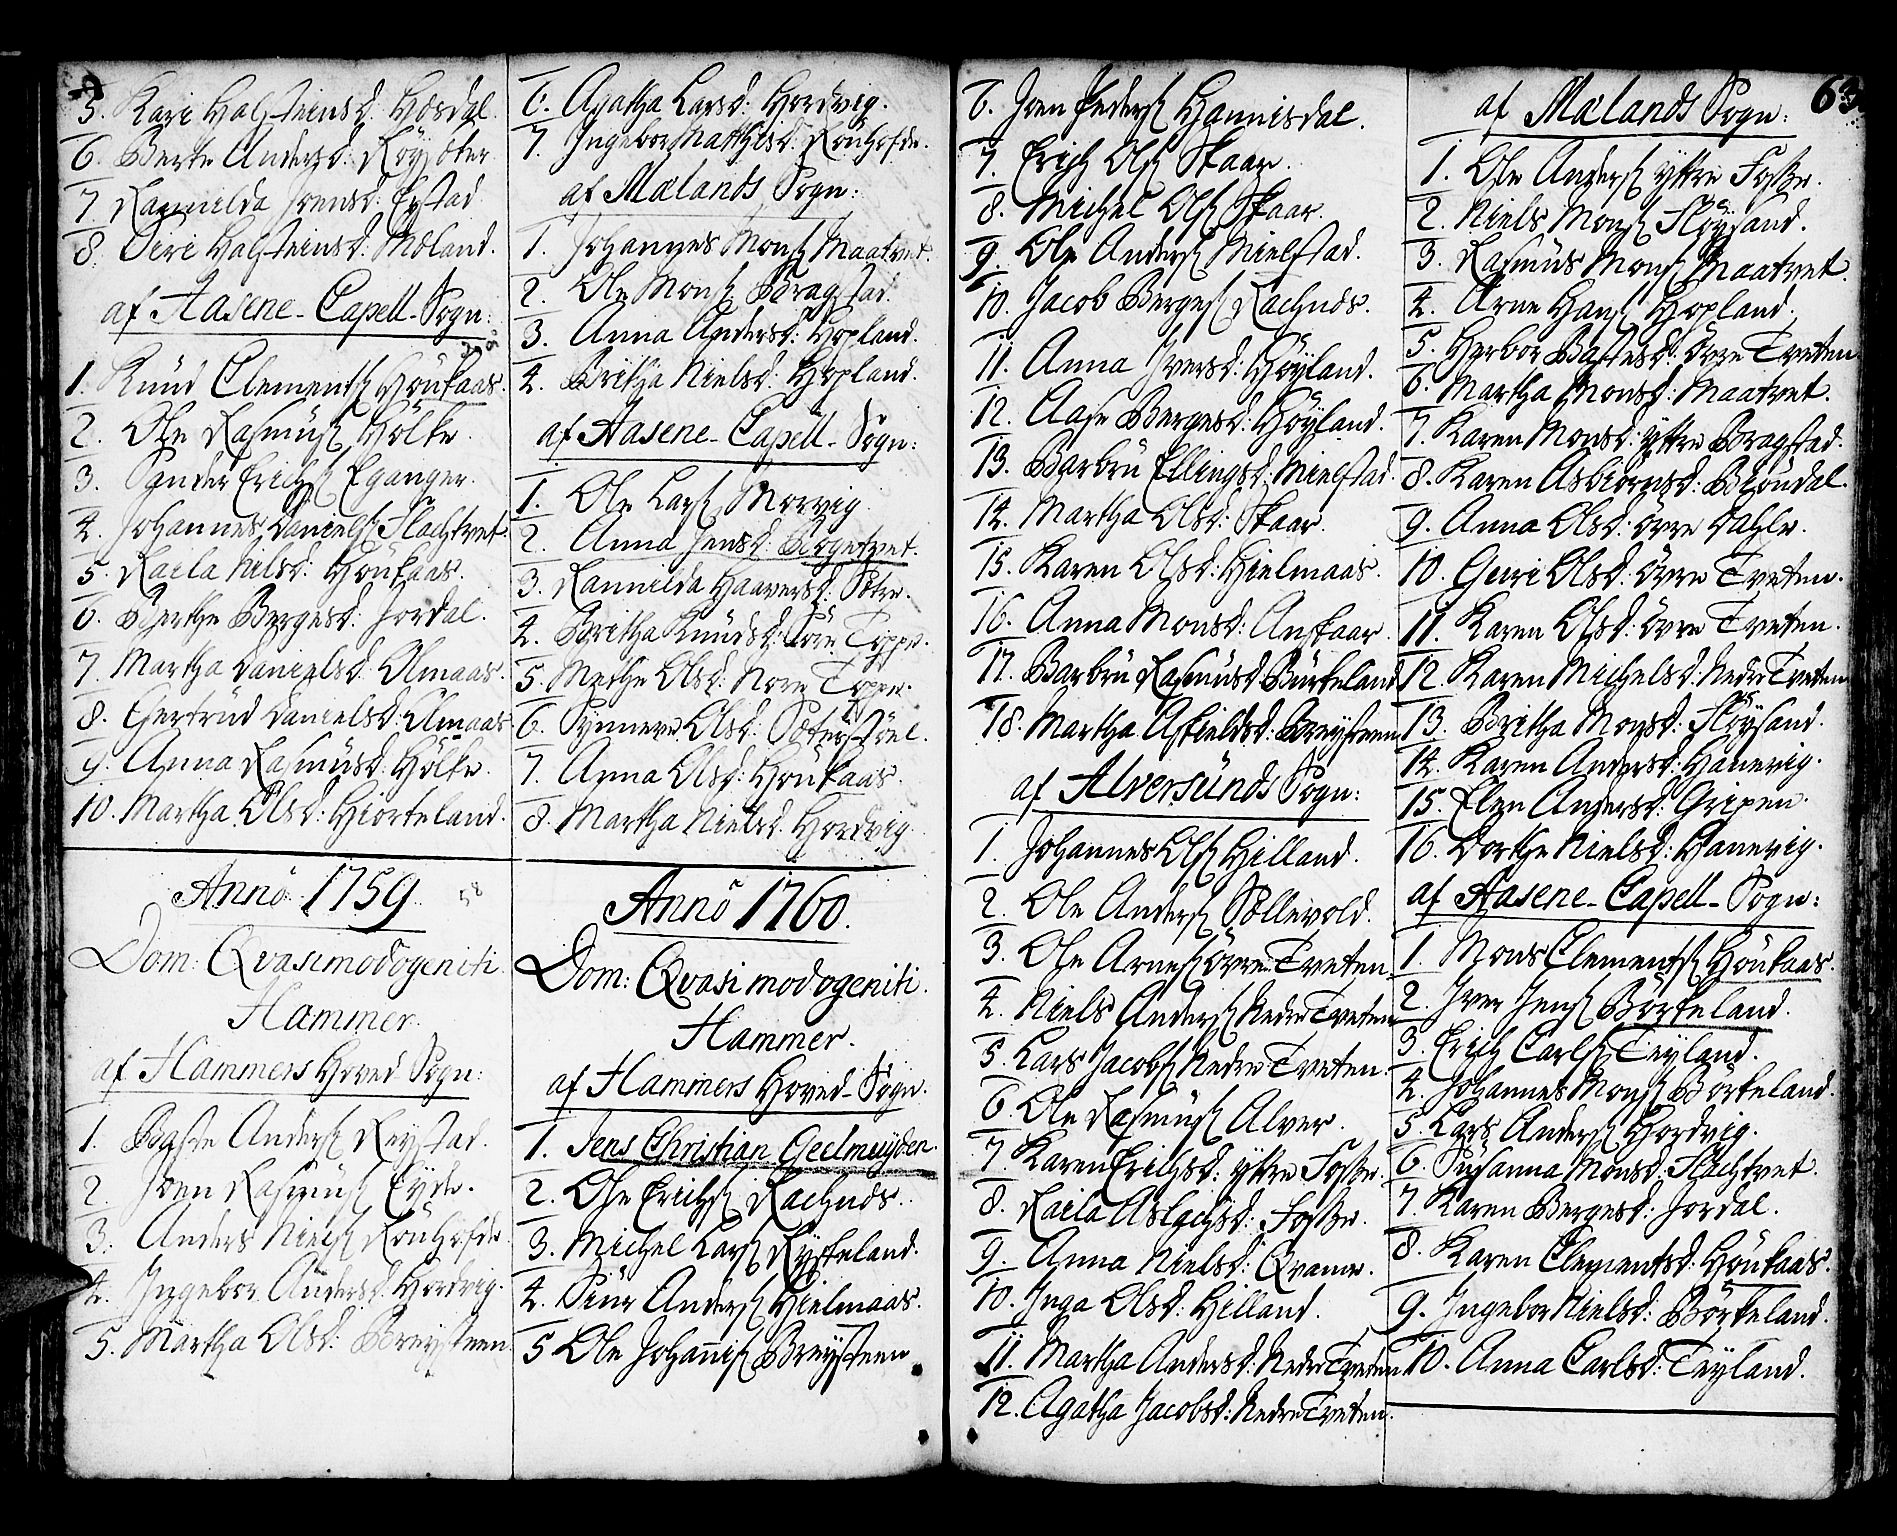 5. Kari Halsteinsd: Hosdal.
6. Berte Andersd: Röysöter
7. Rannilda Joensd: Eystad
8. Siri Halsteinsd: Mæland.
af Aasene-Capell-Sogn:
1. Knud Clements Høukaas.
2. Ole Rasmuss Hölke.
3. Sander Erichs Eganger.
4. Johannes Daniels Flachtvet
5. Raela Nilsd: Høukaas.
6. Berthe Bergesd: Jordal.
7. Martha Danielsd: Olmaas.
8. Gertrud Danielsd: Olmaas
9. Anna Rasmusd: Hölke.
10. Martha Olsd: Hiorteland.
Anno 1759 58
Dom: Qvasimodogeniti
Hammer.
af Hammers Hoved-Sogn:
1. Basse Anders Reystad.
2. Joen Rasmus Eyde.
3. Anders Niels Rönhofde
4. Ingebor Andersd: Hordvig.
5. Martha Olsd: Breysteen
6. Agatha Larsd: Hordvig.
7. Ingebor Matthisd: Rönhofde.
af Mælands Sogn:
1. Johannes Mons Maatvet.
2. Ole Mons Bragstad.
3. Anna Andersd: Hopland.
4. Britha Nielsd: Hopland.
af Aasene-Capell-Sogn:
1. Ole Lars Morvig
2. Anna Jensd: Rogetvet.
3. Rannilda Haaversd: Sötre.
4. Britha Knudsd: Töppe.
5. Methe Olsd: Nore Töppe.
6. Synneve Olsd: Sötersöel.
7. Anna Olsd: Høukaas.
8. Martha Nielsd: Hordvig
Anno 1760.
Dom: Qvasimodogeniti.
Hammer.
af Hammers Hoved-Sogn.
1. Jens Christian Geelmuyden
2. Ole Erichs Rachnds.
3. Michel Lars Rysteland.
4. Siur Anders Hielmaas.
5 Ole Johannis Breysteen
6. Joen Peders Hannisdal.
7. Erich Ols Skaar.
8. Michel Ols Skaar.
9. Ole Anders Mielstad.
10. Jacob Berges Rachnds.
11. Anna Iversd: Höyland.
12. Aase Bergesd: Höyland.
13. Barbru Ellingsd: Mielstad.
14. Martha Olsd: Skaar
15. Karen Olsd: Hielmaas.
16. Anna Monsd: Anskaar.
17. Barbru Rasmusd Burkeland
18. Martha Askieldsd: Breysteen
af Alversunds Sogn:
1. Johannes Ols Hilland.
2. Ole Anders Söllevold.
3. Ole Arnes övre Tveten
4. Niels Anders Nedre Tveten
5. Lars Jacobs Nedre Tveten.
6. Ole Rasmus Alver.
7. Karen Erichsd: yttre Fosse.
8. Raela Aslachsd: Fosse.
9. Anna Nielsd: Qvamme.
10. Inga Olsd: Hilland.
11. Martha Andersd: Nedre Tveten
12. Agatha Jacobsd: Nedre Tveten.
63
af Mælands Sogn:
1. Ole Anders yttre Fosse.
2. Niels Mons Flöysand.
3. Rasmus Mons Maatvet.
4. Arne Hans Hopland.
5. Herbor Bastesd: övre Tveten
6. Martha Monsd: Maatvet.
7. Karen Monsd: yttre Bragstad.
8. Karen Asbiörnsd: Blöndal.
9. Anna Olsd: övre Dahle.
10. Guri Olsd: övre Tveten.
11. Karen Olsd: övre Tveten.
12 Karen Michelsd: Nedre Tveten
13. Britha Monsd: Flöysand.
14. Karen Andersd: Hanevig.
15. Elen Andersd: Gripen.
16. Dorthe Nielsd: Hanevig.
af Aasene-Capell-Sogn:
1. Mons Clements Høukaas.
2 Iver Jens Börkeland.
3 Erich Carls Teyland.
4. Johannes Mons Börkeland.
5. Lars Anders Hordvig.
6. Susanna Monsd: Flachtvet.
7. Karen Bergesd: Jordal.
8. Karen Clementsd: Høukaas.
9. Ingebor Nielsd: Börkeland.
10. Anna Carlsd: Teyland.